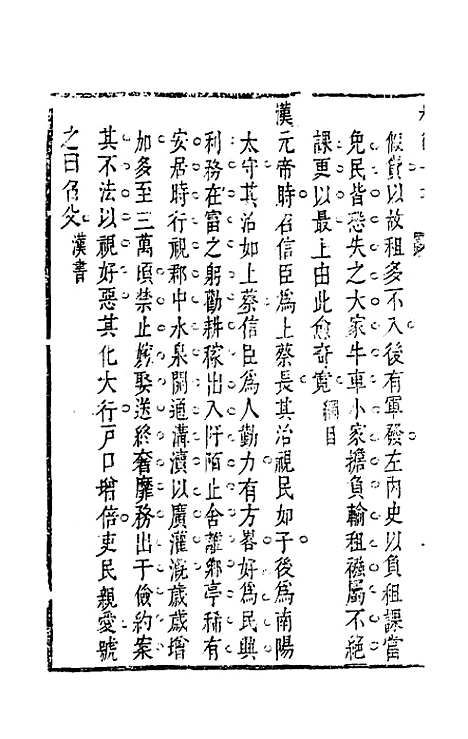 假貸以故租多不入後有軍發左內史以負租課當
免民皆恐失之大家牛車小家擔負輸租襁屬不絕
課更以最上由此愈奇寬 綱目
漢元帝時召信臣爲上蔡長其治視民如子後爲南陽
太守其治如上蔡信臣爲人勤力有方畧好爲民興
利務在富之躬勸耕稼出入阡陌止舍離鄉亭稀有
安居時行視郡中水泉開通溝瀆以廣灌溉歲歲增
加多至三萬頃禁止嫁娶送終奢靡務出于儉約案
其不法以視好惡其化大行戶口增倍吏民親愛號
之曰召父 漢書